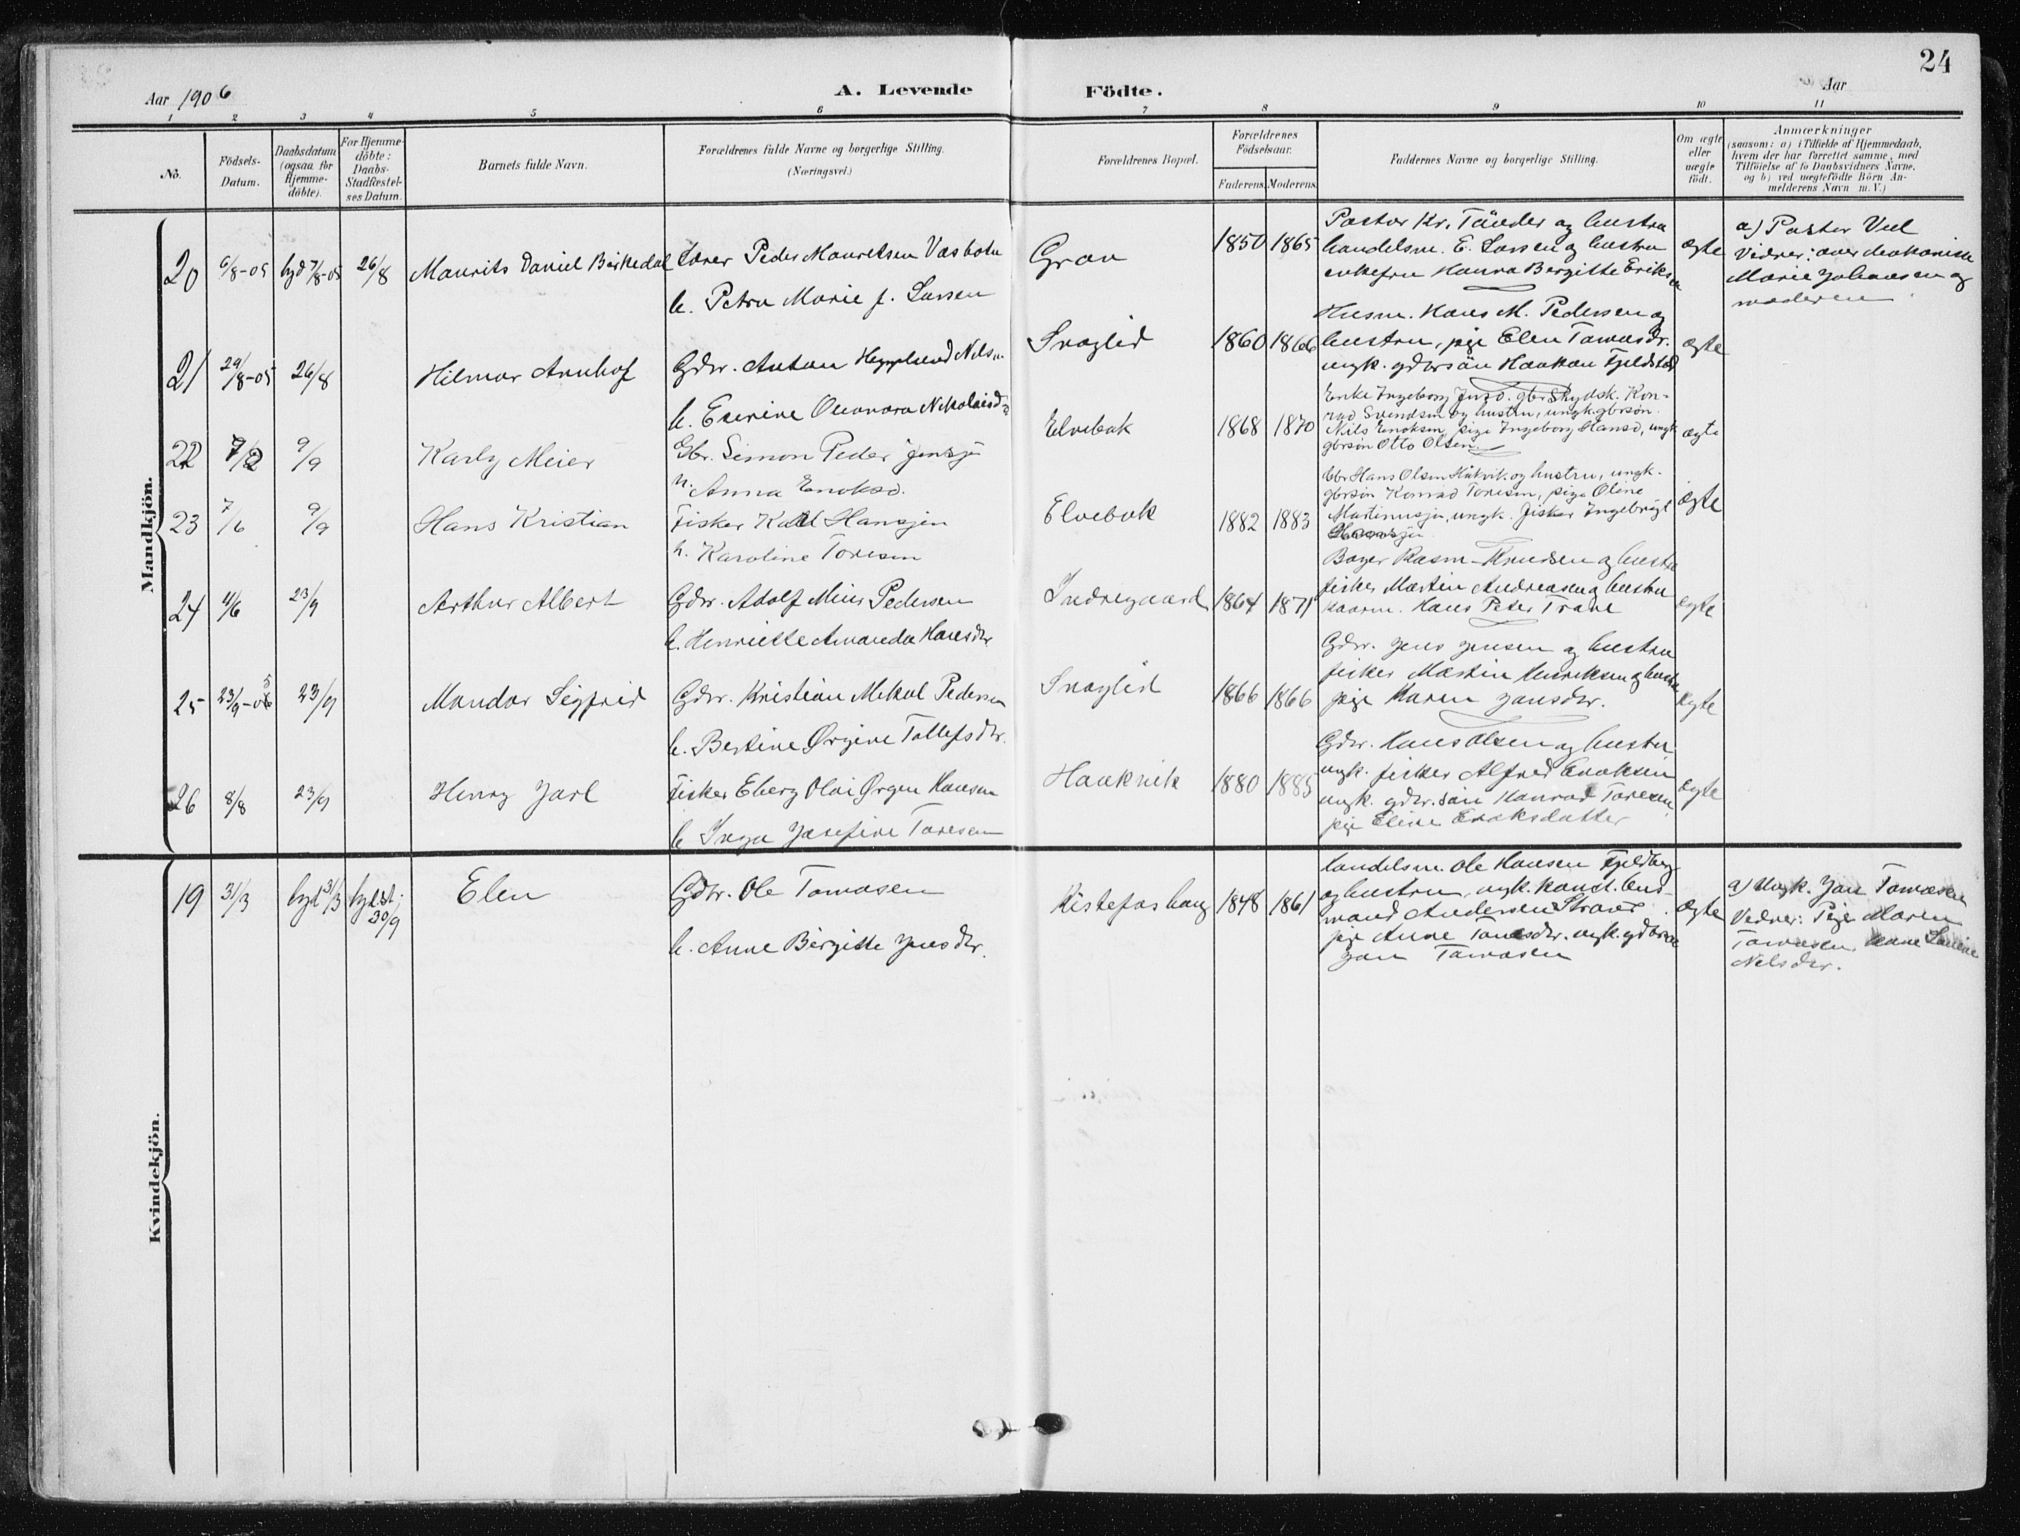 24
Aar 1906
A. Levende
Födte.
Aar
1 2 3 4 5 6 7 8 9 10 11
No.
Födsels-Datum.
Daabsdatum (ogsaa for Hjemme-döbte).
For Hjemme-döbte: Daabs-Stadfæstel-ses Datum.
Barnets fulde Navn.
Forældrenes fulde Navne og borgerlige Stilling.
(Næringsvei.)
Forældrenes Bopæl.
Forældrenes Födselsaar.
Faderens. Moderens.
Faddernes Navne og borgerlige Stilling.
Om ægte eller uægte födt.
Anmærkninger
(saasom: a) i Tilfælde af Hjemmedaab,
hvem der har forrettet samme, med
Tilföielse af to Daabsvidners Navne,
og b) ved uægtefödte Börn An-
melderens Navn m. V.)
Mandkjön.
20 6/8-05 hjd 7/8-05 26/8 Maurits Daniel Birkedal
Lærer Peder Mauritsen Vasbotn
h. Petra Marie f. Larsen
Gran 1850 1865
Pastor Kr. Tönder og hustru
handelsm. E. Larsen og hustru
enkefru Hanna Bergitte Eriksen
ægte
a) Pastor Vel
Vidner:
Marie Johansen og
moderen
21 29/8-05 26/8 Hilmar Arnhof
Gdbr. Anton Nilsen
h. Eserine Nikolaisd.
Snoglid 1860 1866
Husm. Hans M. Pedersen og
hustru, pige Elen Tomasdr.
ungk. gdbrsön Haakon Fjeldstad
ægte
22 9/9 Karly Meier
Gbr. Simon Peder Jensen
h. Anna Enoksd.
Elvebak 1868 1870
Enke Ingeborg Jensd. gbr Skydsk. Kon-
rad Svendsen og hustru, ungk. gbrsön
Nils Enoksen, pige Ingeborg Hansd, ungk
gbrsön Otto Olsen
ægte
23 7/6 9/9 Hans Kristian
Fisker Karl Hansen
h. Karoline Toresen
Elvebak 1882 1883
Gbr Hans Olsen Håkvik og hustru, ungk.
gbrsön Konrad Toresen, pige Oline
Martinusen, ungk. fisker Ingebrigt
Hansen
ægte
24 4/6 23/9 Arthur Albert
Gdbr. Adolf Meier Pedersen
h. Henriette Amanda Hansdr
Indregaard 1864 1871
Rasm. Knudsen og hustru
fisker Martin Andreasen og hustru
Hans Peter Trane
ægte
25 23/9-05 23/9 Mondor Sigfrid
Gdbr. Kristian Mikal Pedersen
h. Bertine Ørgine Tollefsdr.
Snoglid 1866 1866
Gdbr. Jens Jensen og hustru
fisker Martin Henriksen og hustru
pige Karen Jensdr.
ægte
26 8/8 23/9 Henry Jarl
Fisker Eberg Olai Ørgen Hansen
h Inga Josefine Toresen
Haakvik 1880 1885
Gdbr. Hans Olsen og hustru
ungk. fisker Alfred Enoksen
ungk. gdbr. sön Konrad Toresen
pige Eline Enoksdatter
ægte
Kvindekjön.
19 31/3 hjd 31/3 hjdst: 30/9 Elen
Gdbr. Ole Tomasen
h. Anne Birgitte Jensdr.
Kistefoshaug 1848 1861
Handelsm. Ole Hansen Fjeldberg
og hustru, ungk. kand. hus-
mand Andersen
pige Anne Tomasdr. ungk. gdbrsön
Jon Tomasen
ægte
a) Ungk. Jon Tomasen
Vidner: Pige Maren
Tomasen,
Nelsdr.